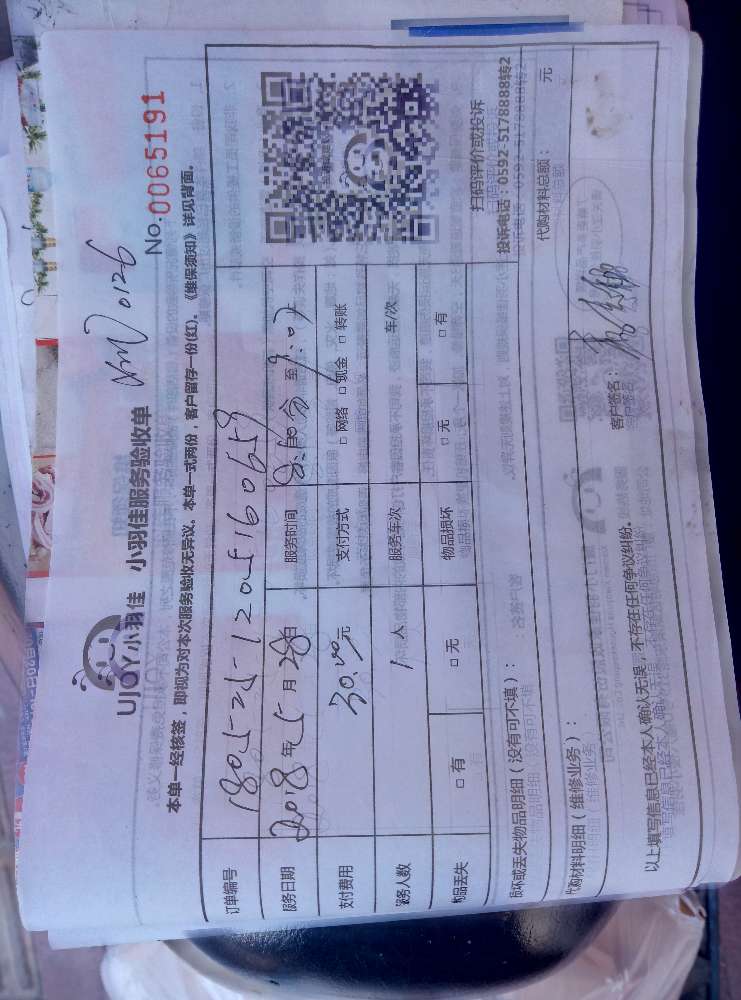 UJOY小羽佳 小羽佳服务验收单
0126
No.0065191
本单一经核签，即视为对本次服务验收无异议。本单一式两份，客户留存一份(红)。《维保须知》详见背面。
订单编号
服务日期 2018年5月28日 服务时间 至9:07
支付费用 30.00元 支付方式 □网络 □现金 □转账
服务人数 1人 服务车次 车/次
物品丢失 □有 □无 物品损坏 □无 □有
扫码评价或投诉
投诉电话：0592-5178888转2
损坏或丢失物品明细（没有可不填）：
代购材料明细（维修业务）： 代购材料总额： 元
以上填写信息已经本人确认无误，不存在任何争议纠纷。 客户签名：